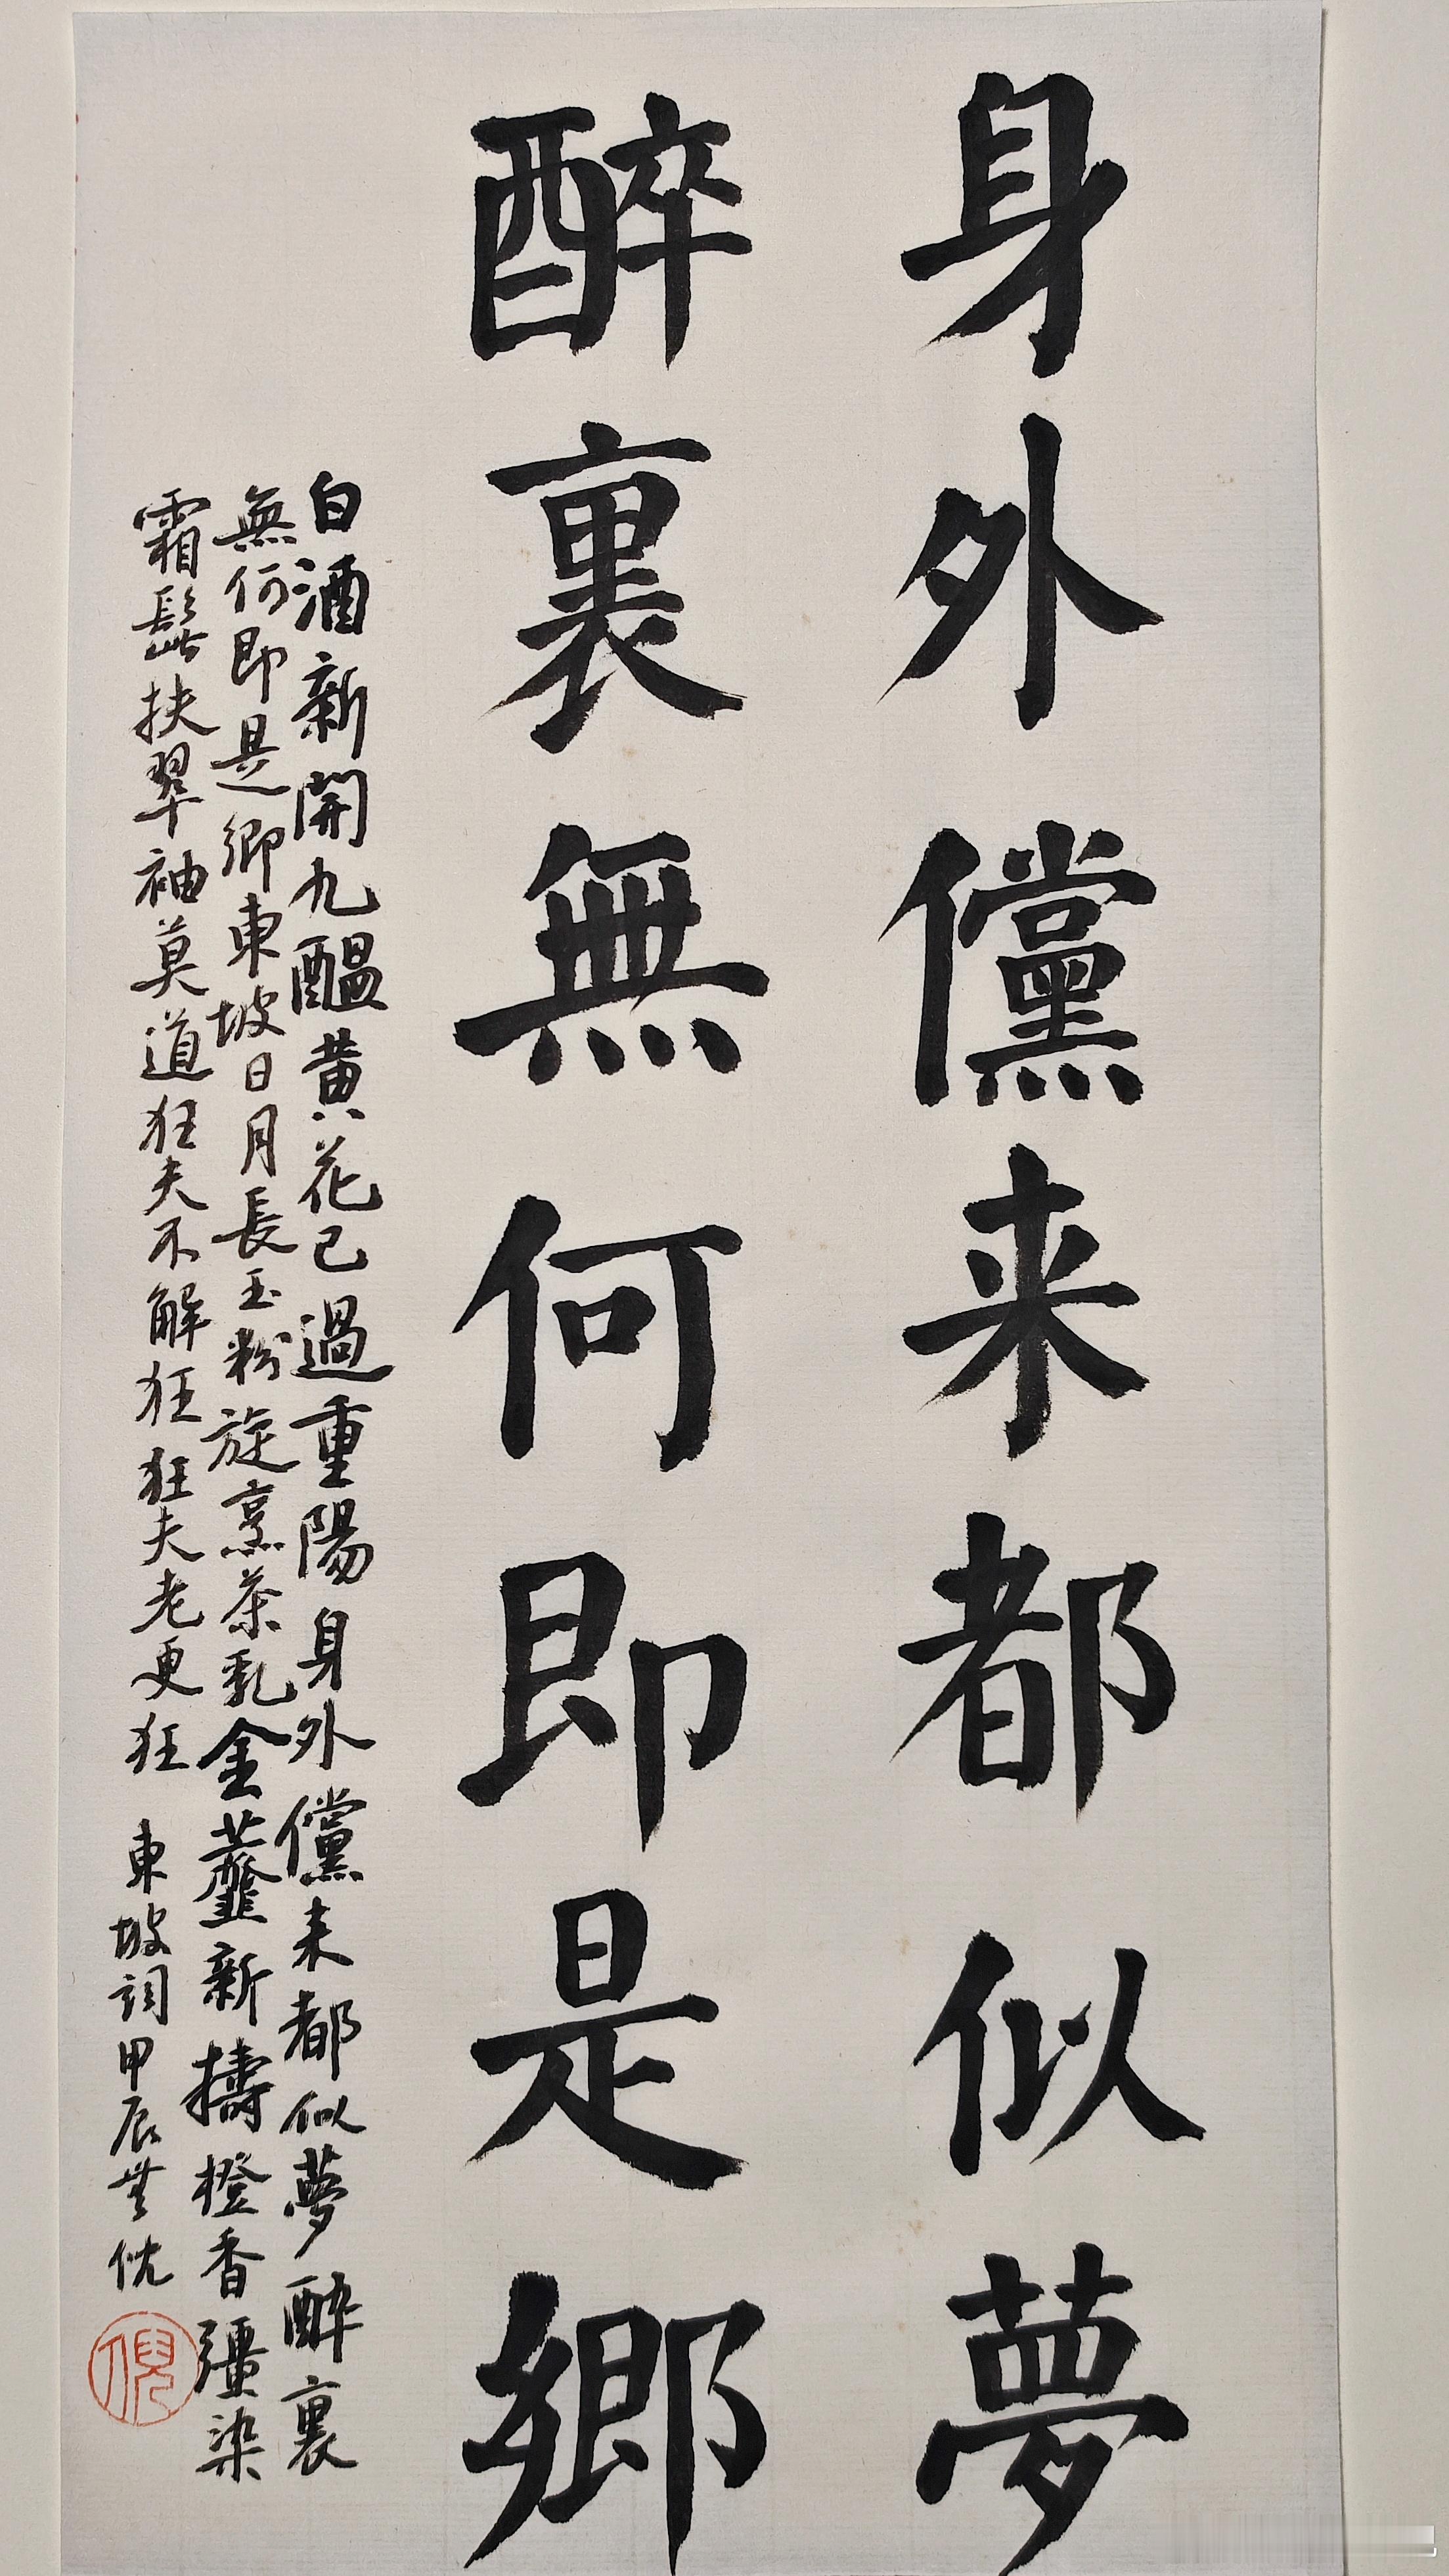 身外儻来都似夢
醉裏無何即是鄉
白酒新開九醞黄花已過重陽身外儻来都似夢醉裏
無何即是鄉東坡日月長玉粉旋烹茶乳金虀新擣橙香彊染
霜髭扶翠袖莫道狂夫不解狂狂夫老更狂 東坡詞甲辰無忱
倪